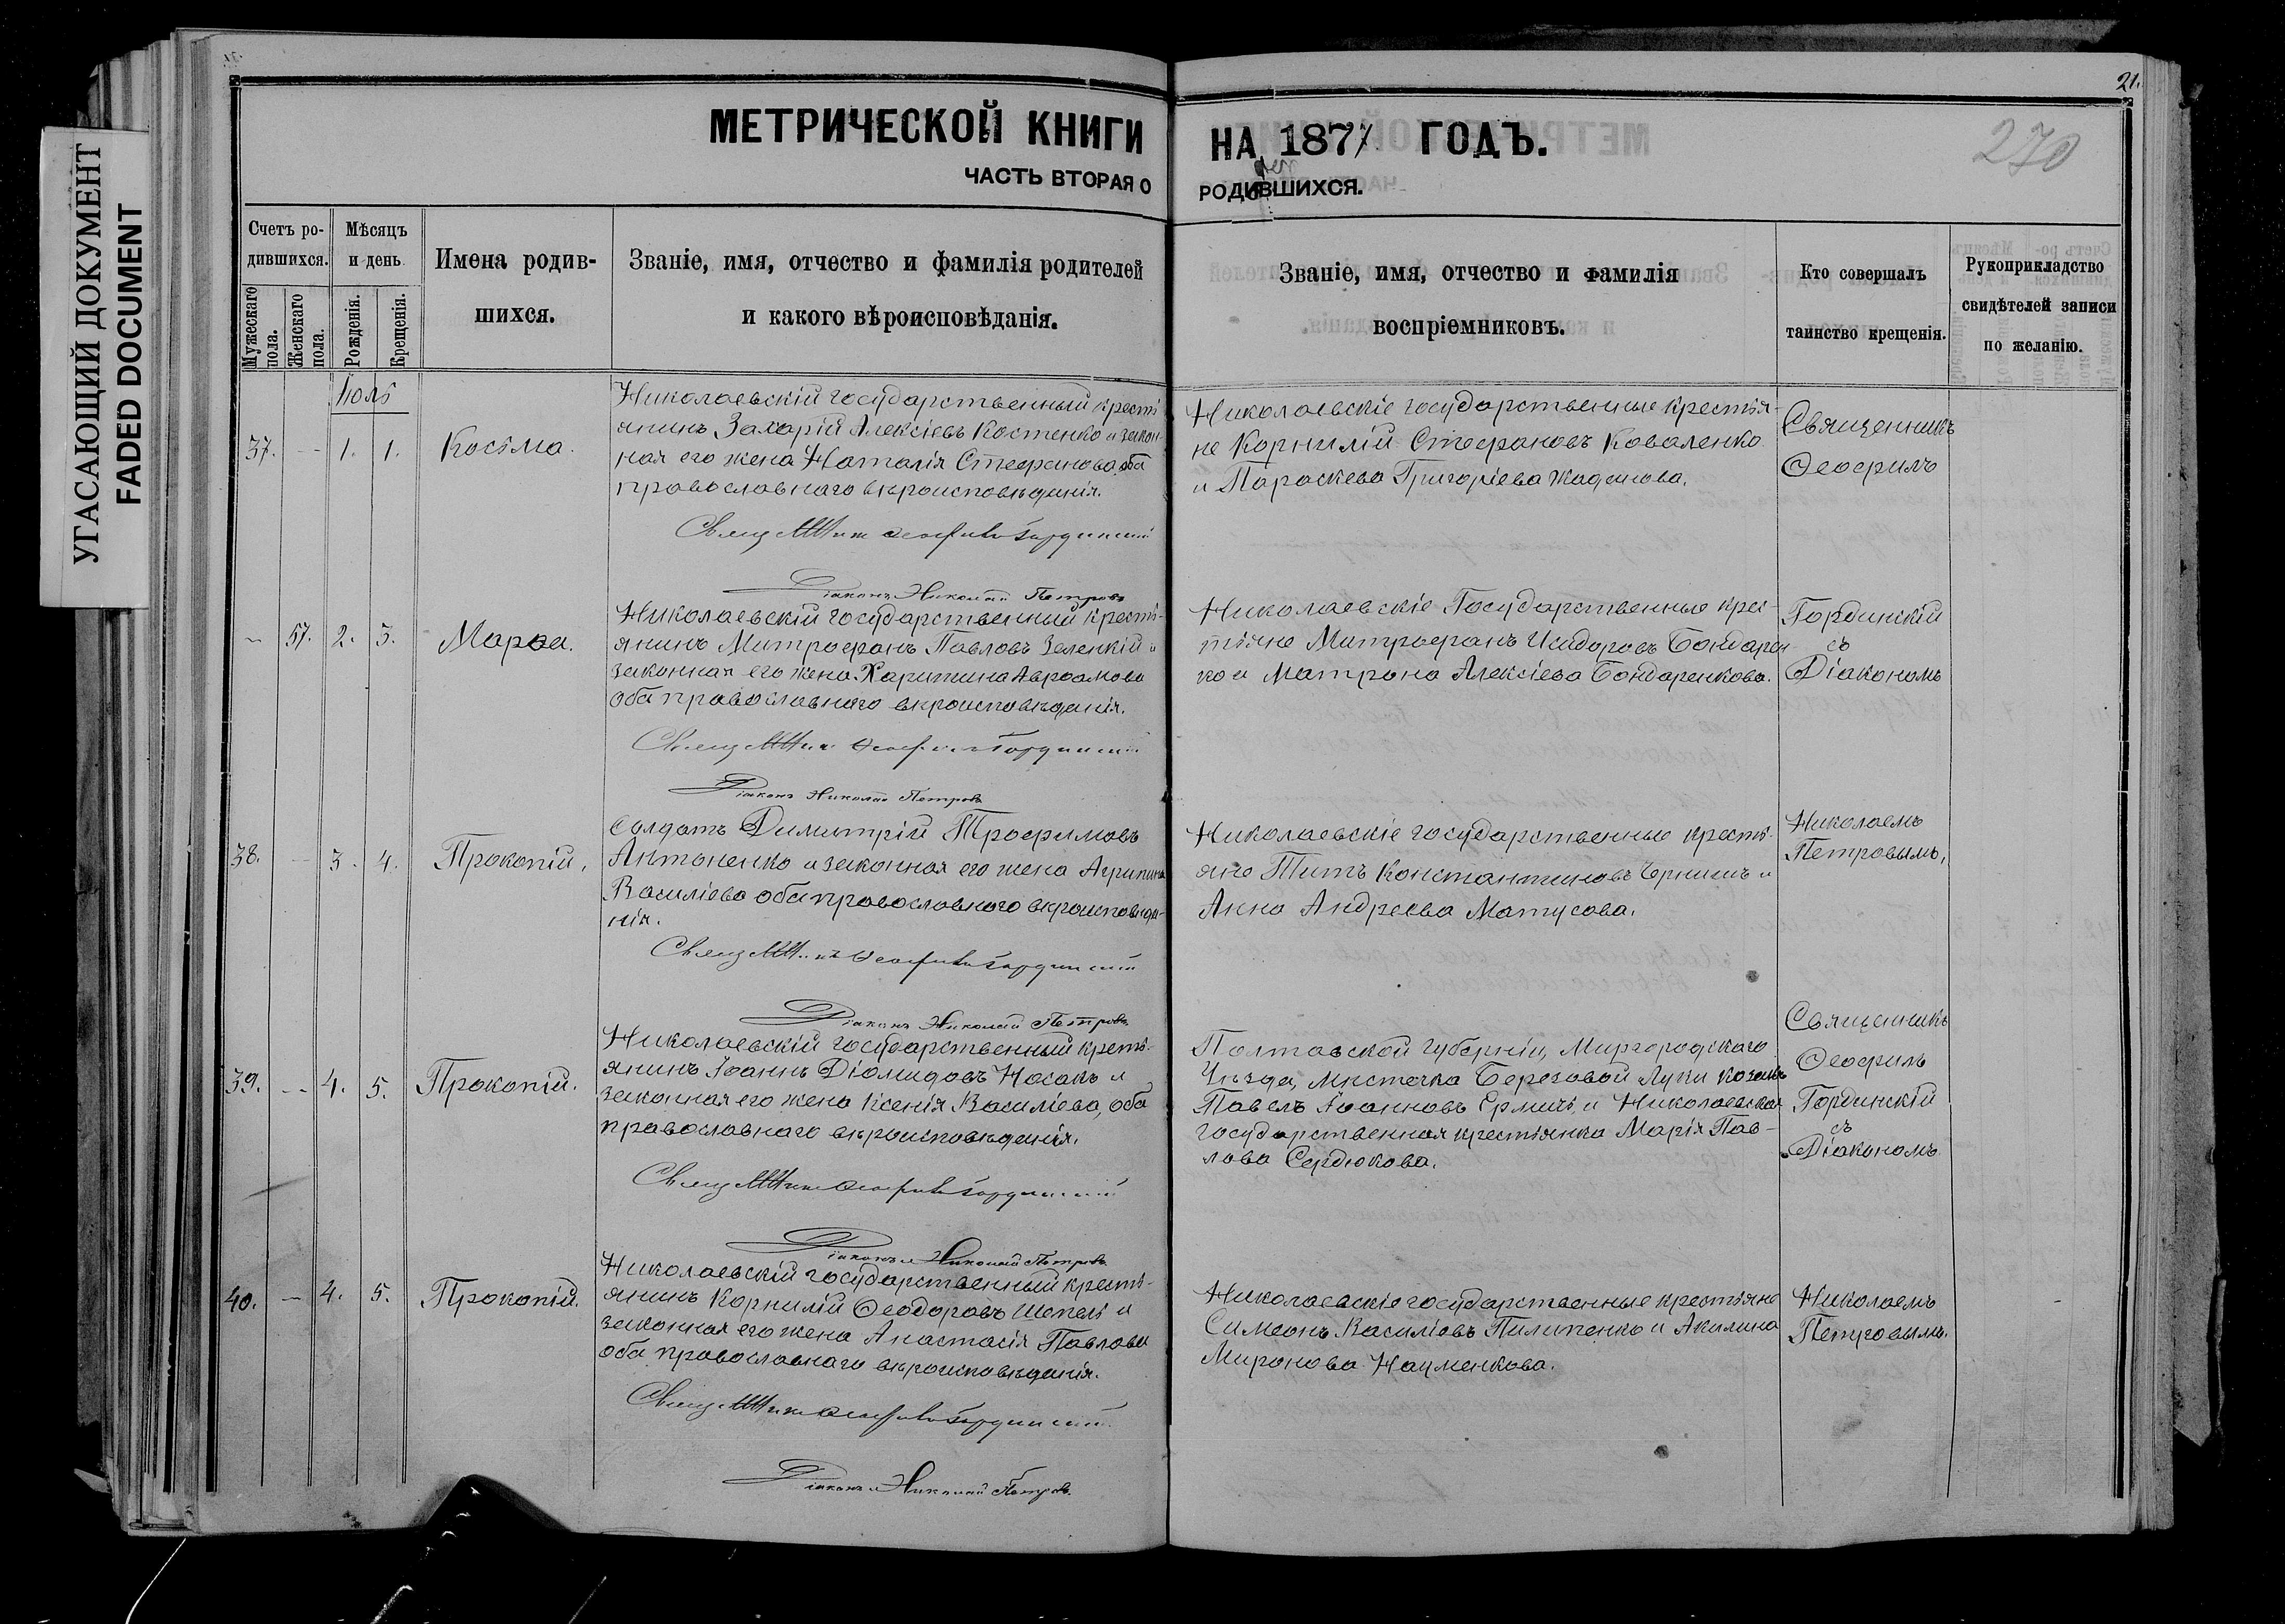 УГАСАЮЩИЙ ДОКУМЕНТ
FADED DOCUMENT
21.
270
МЕТРИЧЕСКОЙ КНИГИ НА 1877 ГОДЪ.
ЧАСТЬ ВТОРАЯ О РОДИВШИХСЯ.
Счетъ ро-
дившихся.
Мужескаго пола.
Женскаго пола.
Мѣсяцъ
и день
Рожденія.
Крещенія.
Имена родив-
шихся.
Званіе, имя, отчество и фамилія родителей
и какого вѣроисповѣданія.
Званіе, имя, отчество и фамилія
воспріемниковъ.
Кто совершалъ
таинство крещенія.
Рукоприкладство
свидѣтелей записи
по желанію.
Іюль
37. — 1. 1. Косьма.
Николаевскій государственный кресть
янинъ Захарій Алексіевъ Костенко и закон-
ная его жена Наталія Стефанова, оба
православнаго вѣроисповѣданія.
Николаевскіе государственные крестья-
не Корнилій Стефановъ Коваленко
и Параскева Григоріева Жаданова.
Священникъ
Ѳеофилъ
Діаконъ Николай Петровъ
— 57. 2. 3. Марѳа.
Николаевскій государственный кресть-
янинъ Митрофанъ Павловъ Зеленкій и
законная его жена Харитина Авраамова
оба православнаго вѣроисповѣданія.
Николаевскіе Государственные крес-
тьяне Митрофанъ Исидоровъ Бондарен
ко и Матрона Алексіева Бондаренкова.
Гординскій
съ
Діакономъ
Діаконъ Николай Петровъ
38. — 3. 4. Прокопій.
Солдатъ Димитрій Трофимовъ
Антоненко и законная его жена Агрипина
Василіева оба православнаго вѣроисповѣда-
нія.
Николаевскіе государственные кресть-
яне Титъ Константиновъ Чернишъ и
Анна Андреева Матусова.
Николаемъ
Петровымъ,
Діаконъ Николай Петровъ
39. — 4. 5. Прокопій.
Николаевскій государственный кресть-
янинъ Іоаннъ Діомидовъ Носакъ и
законная его жена Ксенія Василіева, оба
православнаго вѣроисповѣданія.
Полтавской губерніи, Миргородскаго
Уѣзда, мѣстечка Березовой Луки козакъ
Павелъ Іоанновъ Ермичъ, и Николаевская
государственная крестьянка Марія Пав-
лова Сердюкова.
Священникъ
Ѳеофилъ
Гординскій
съ
Діакономъ
Діаконъ Николай Петровъ
40. — 4. 5. Прокопій.
Николаевскій государственный кресть-
янинъ Корнилій Ѳеодоровъ Шепель и
законная его жена Анастасія Павлова
оба православнаго вѣроисповѣданія.
Николаевскіе государственные крестьяне
Симеонъ Василіевъ Пилипенко и Акилина
Миронова Науменкова.
Николаемъ
Петровымъ.
Діаконъ Николай Петровъ.